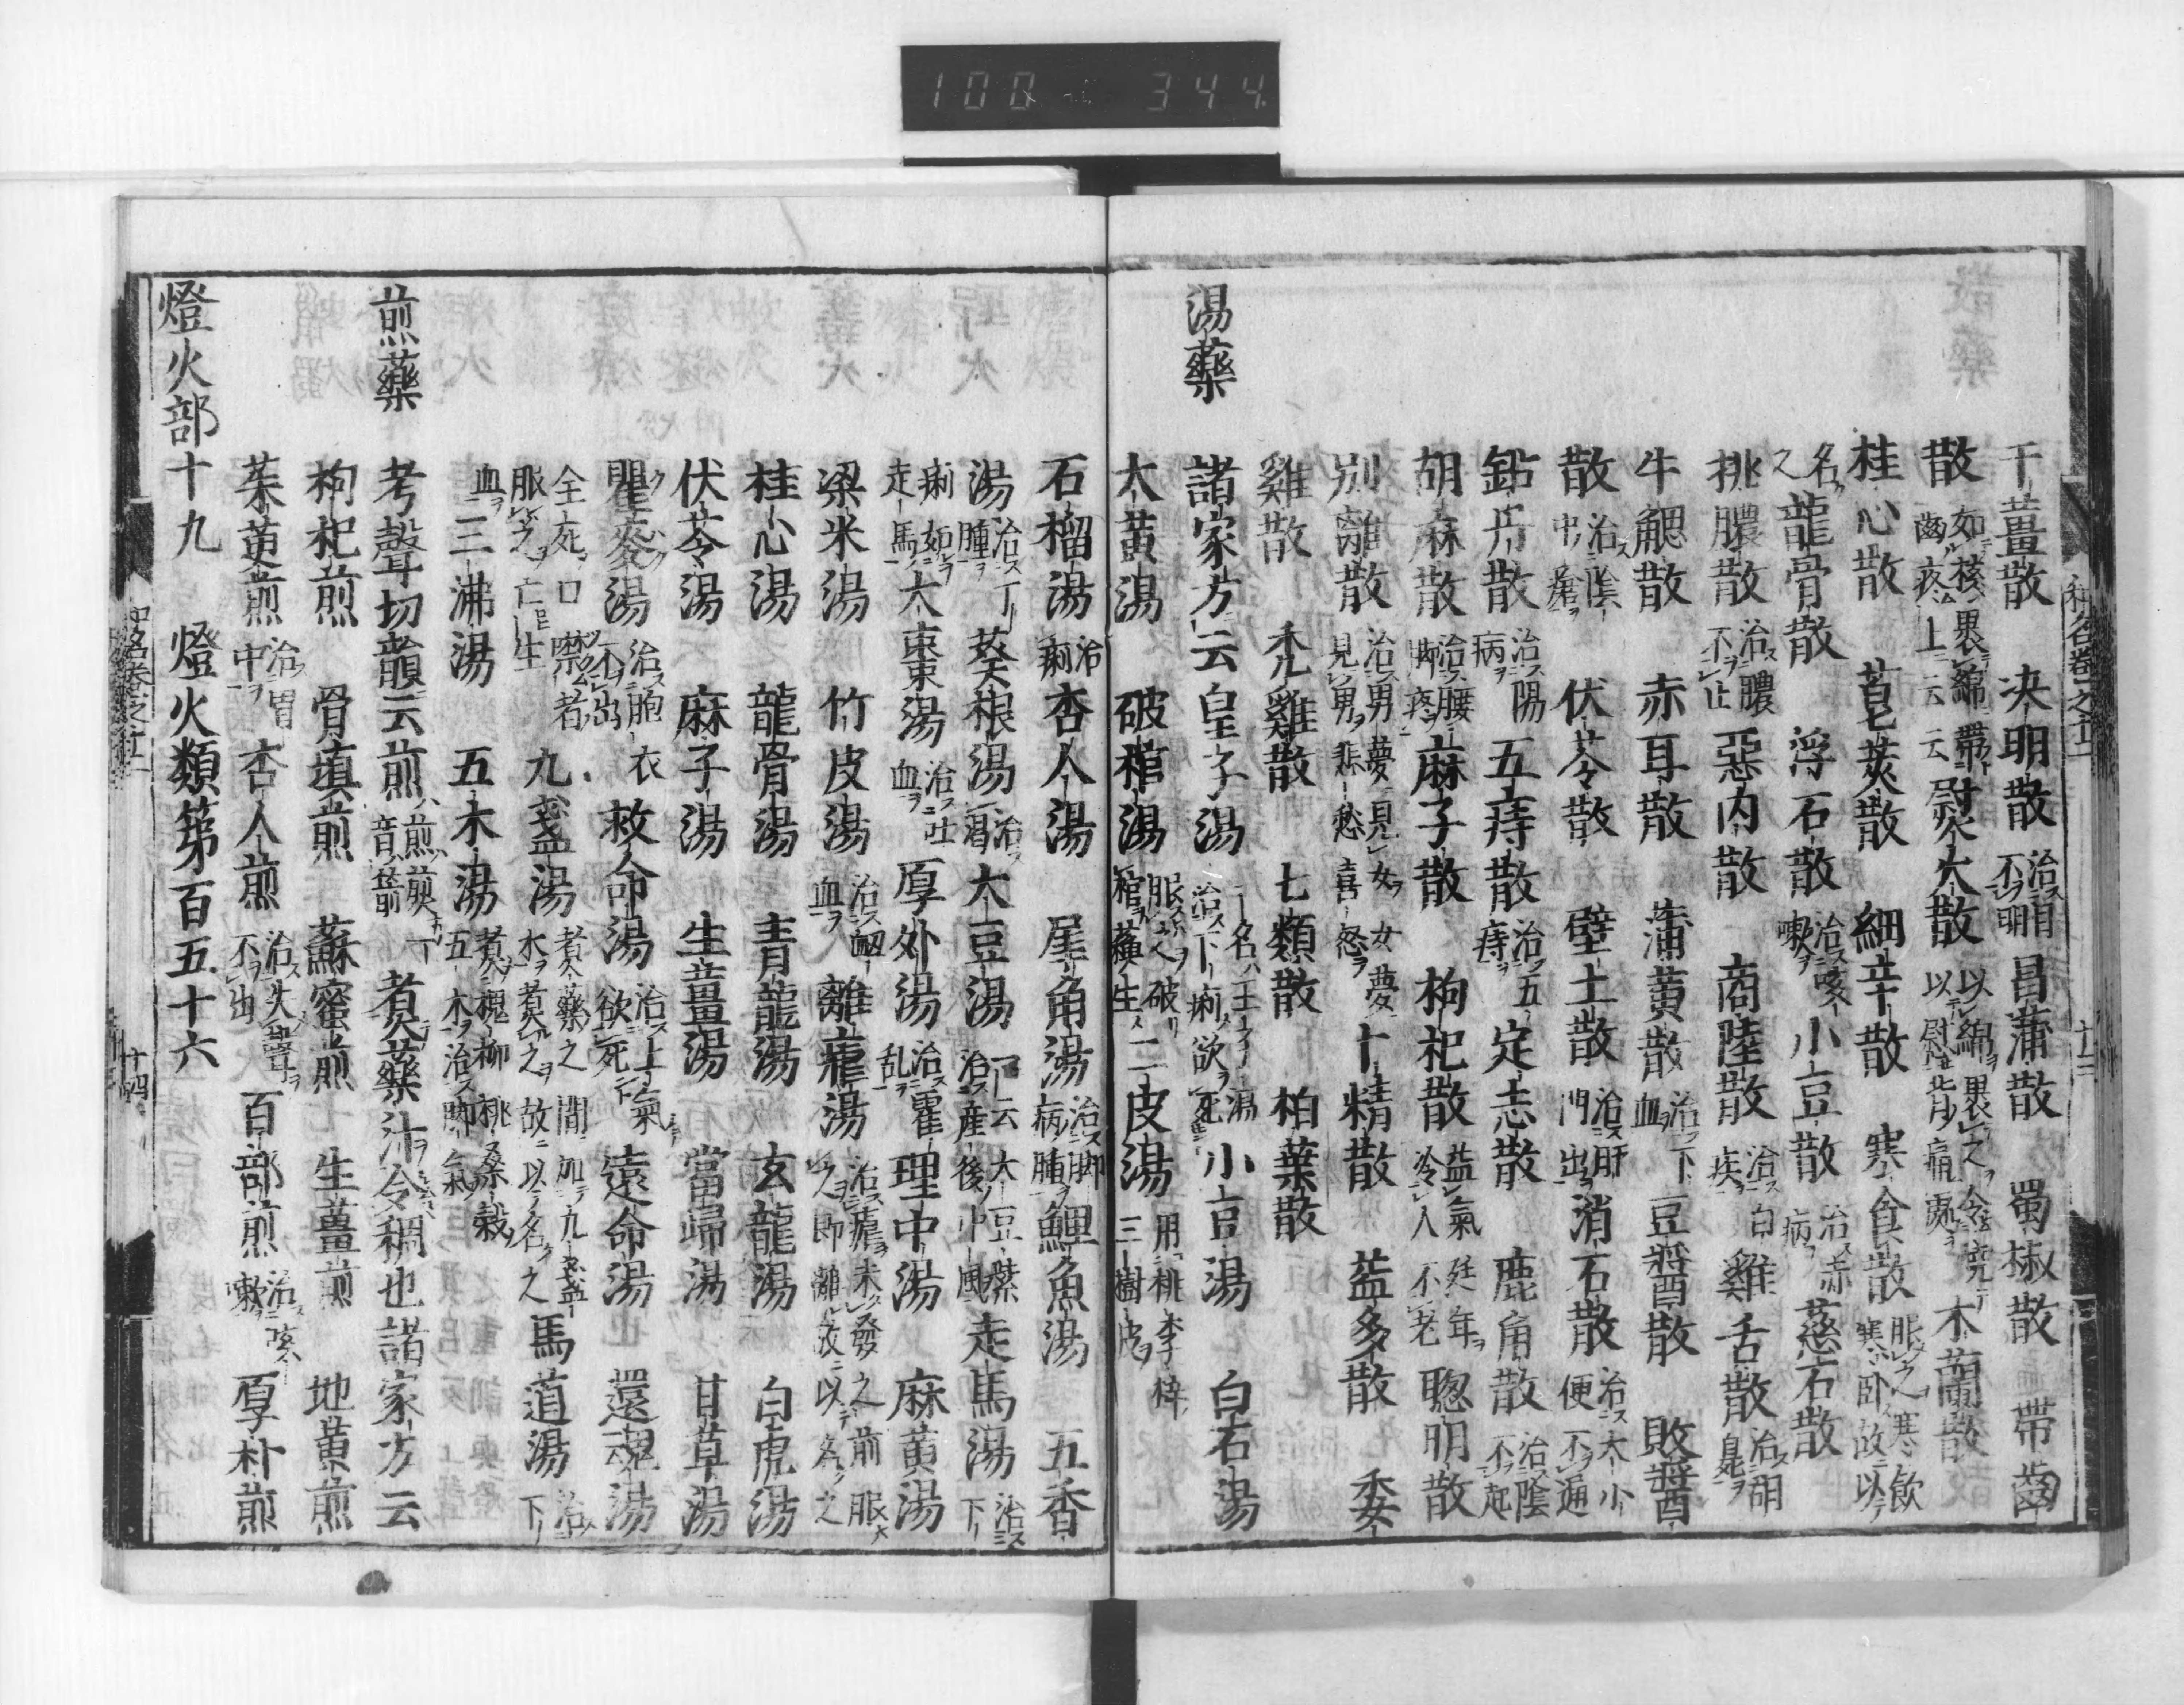 100 344
干薑散 决明散 治目不明 昌蒲散 蜀椒散 帶齒
散 如核裹綿帶齒疼上云云 熨大散 以綿裹之令完以熨背痛處 木蘭散
桂心散 皂莢散 細辛散 寒食散 服之寒飲寒卧故以
名之 龍骨散 浮石散 治咳嗽 小豆散 治赤病 慈石散
桃膿散 治膿不止 惡内散 商陸散 治白疾 雞舌散 治胡臭
牛䚡散 赤耳散 蒲黄散 治下血 豆醬散 敗醬
散 治陰中瘡 伏苓散 壁土散 治肝門出 消石散 治大小便不通
鉛丹散 治陽病 五痔散 治五痔 定志散 鹿角散 治陰不起
胡麻散 治腰脚疼 麻子散 枸杞散 益氣冷人延年不老 聰明散
別離散 治男夢見女女夢見男悲愁喜怒 十精散 益多散 委
雞散 禿雞散 七類散 柏葉散
湯藥
諸家方云皇子湯 一名王子湯治下痢欲死 小豆湯 白石湯
大黄湯 破棺湯 服之破棺蘓生 二皮湯 用桃李梓三樹皮
石榴湯 冷痢 杏人湯 犀角湯 治脚病腫 鯉魚湯 五香
湯 治丁腫 葵根湯 治淄 大豆湯 一云大豆紫治産後中風 走馬湯 治下
痢如走馬 大棗湯 治吐血 厚外湯 治霍乱 理中湯 麻黄湯
粱米湯 竹皮湯 治衂血 離𤸎湯 治瘧未發之前服之即離故以名之
桂心湯 龍骨湯 青龍湯 玄龍湯 白虎湯
伏苓湯 麻子湯 生薑湯 當歸湯 甘草湯
瞿麥湯 治胞衣不出 救命湯 治上氣欲死 遠命湯 還魂湯
全死口噤者服之亡生 九盞湯 煮藥之間加九盞水煮之故以名之 馬道湯 治下
血 三沸湯 五木湯 煮槐柳桃桑穀五木治脚氣
煎藥
考聲切韻云煎 煎煎音箭 煮藥汁令稠也諸家方云
枸杞煎 骨填煎 蘇蜜煎 生薑煎 地黄煎
茱萸煎 治胃中 杏人煎 治失聲不出 百部煎 治咳嗽 厚朴煎
燈火部十九 燈火類第百五十六